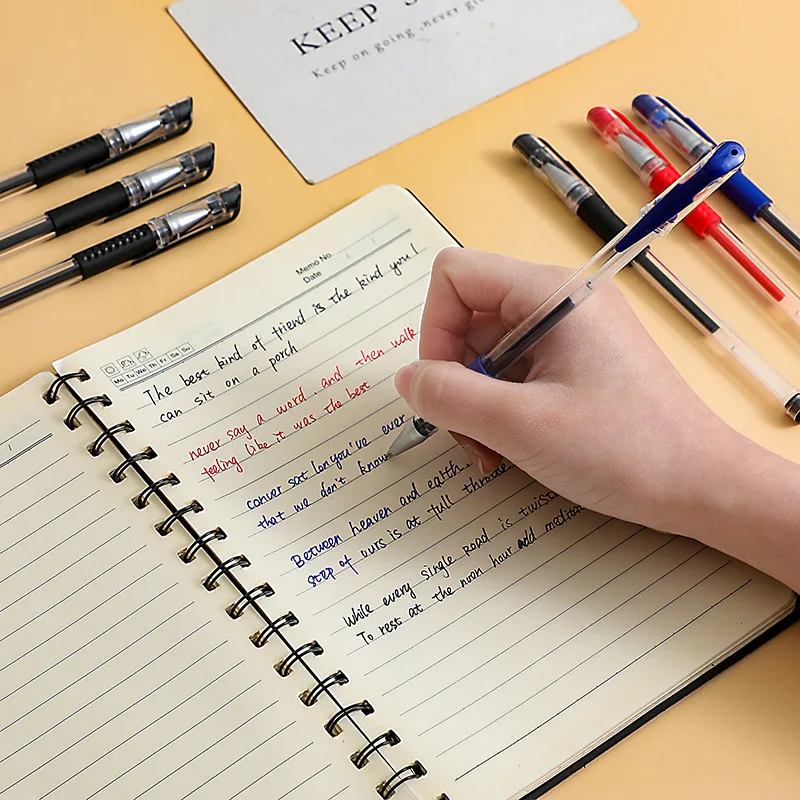 KEEP
Keep on going never gi
Memo No.
Date / /
Mo Tu We Th Fr Sa Su
The best kind of friend is the kind you!
can sit on a porch
never say a word, and then walk
feeling like it was the best
conver sat lon you've ever
that we don't know
Between heaven and earth
step of ours is at full throttle
While every single Road is twist
To rest at the noon hour and medita